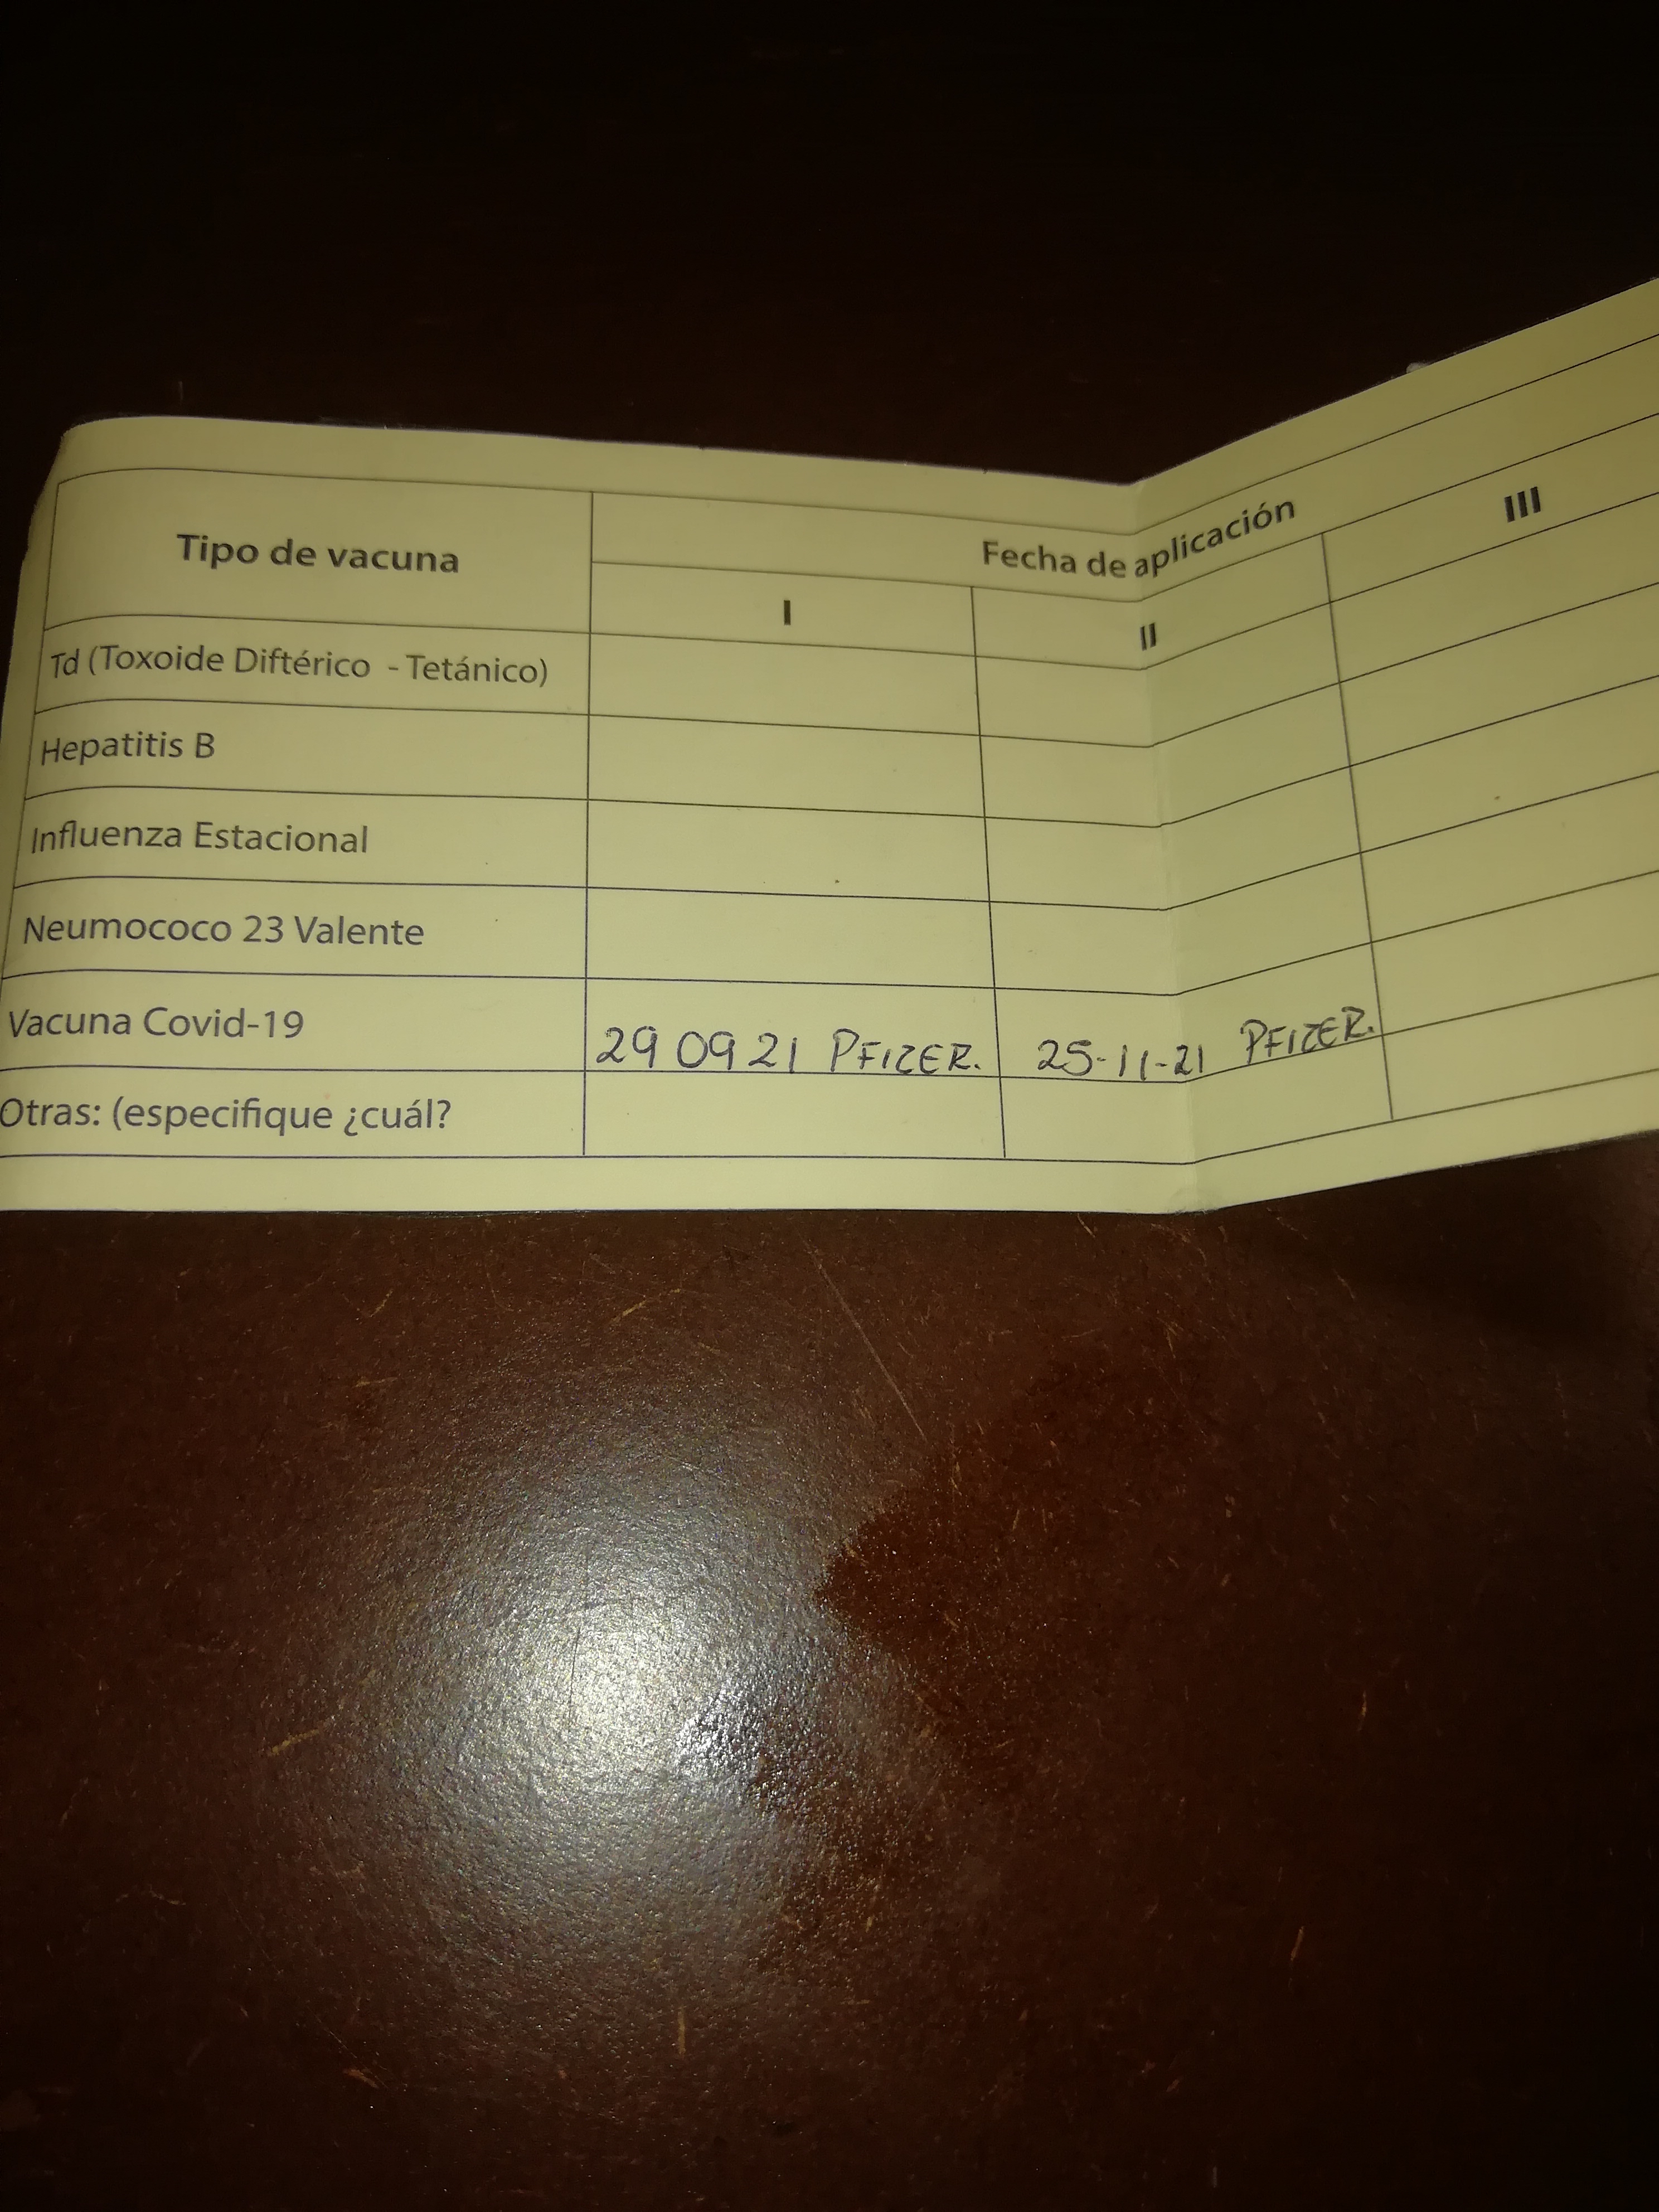 Tipo de vacuna
Fecha de aplicación
I
II
III
Td (Toxoide Diftérico - Tetánico)
Hepatitis B
Influenza Estacional
Neumococo 23 Valente
Vacuna Covid-19 29 09 21 PFIZER. 25-11-21 PFIZER.
Otras: (especifique ¿cuál?